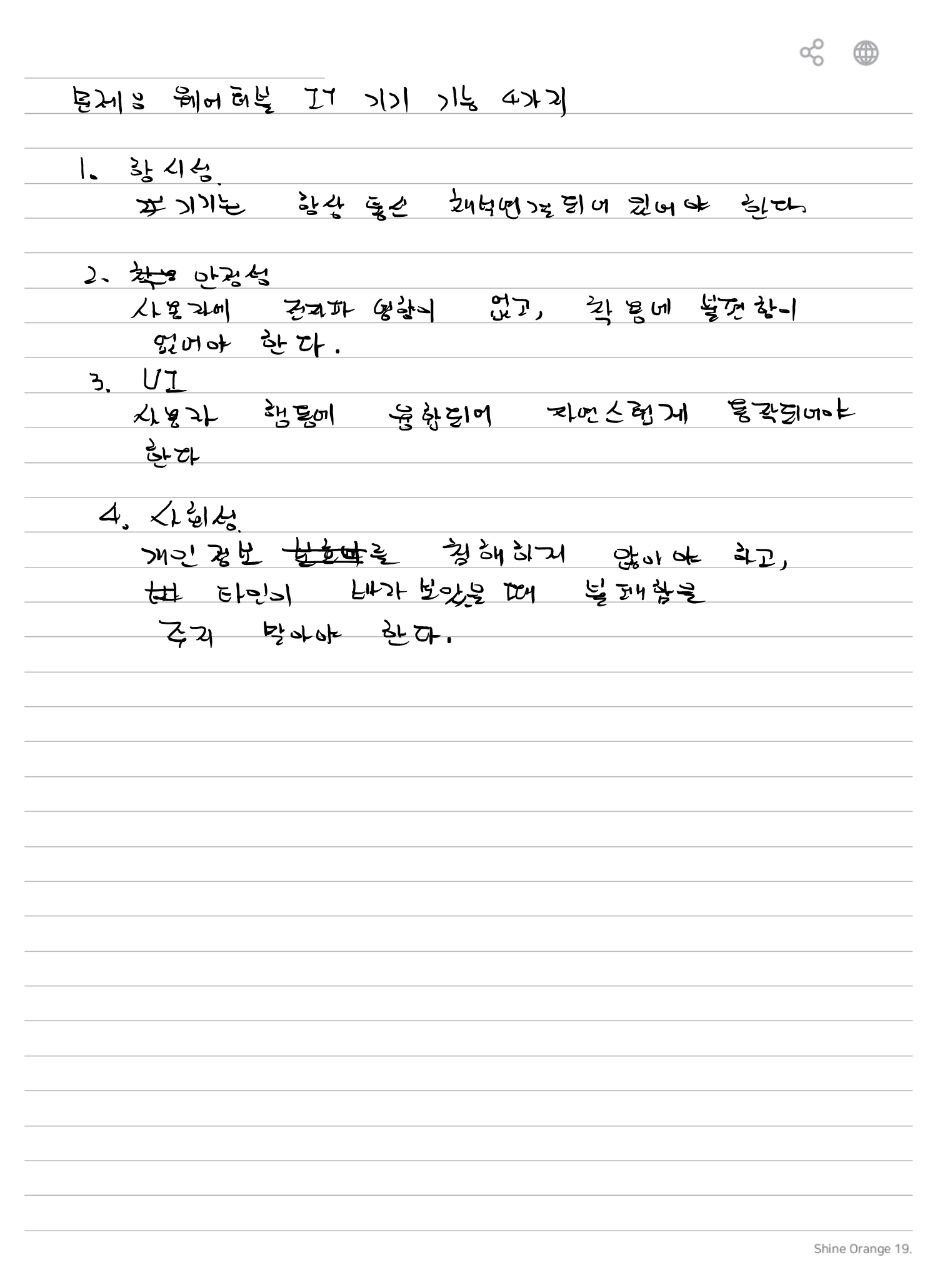 문제 웨어러블 IT 기기 기능 4가지
1. 항시성
기기는 항상 통신 되어 있어야 한다.
2. 안정성
사용자에 전자파 영향이 없고, 착용에 불편함이
없어야 한다.
3. UI
사용자 행동에 융합되어 자연스럽게 동작되어야
한다
4. 사회성
개인정보 를 침해하지 않아야 하고,
타인이 내가 보았을 때 불쾌함을
주지 말아야 한다.
Shine Orange 19.